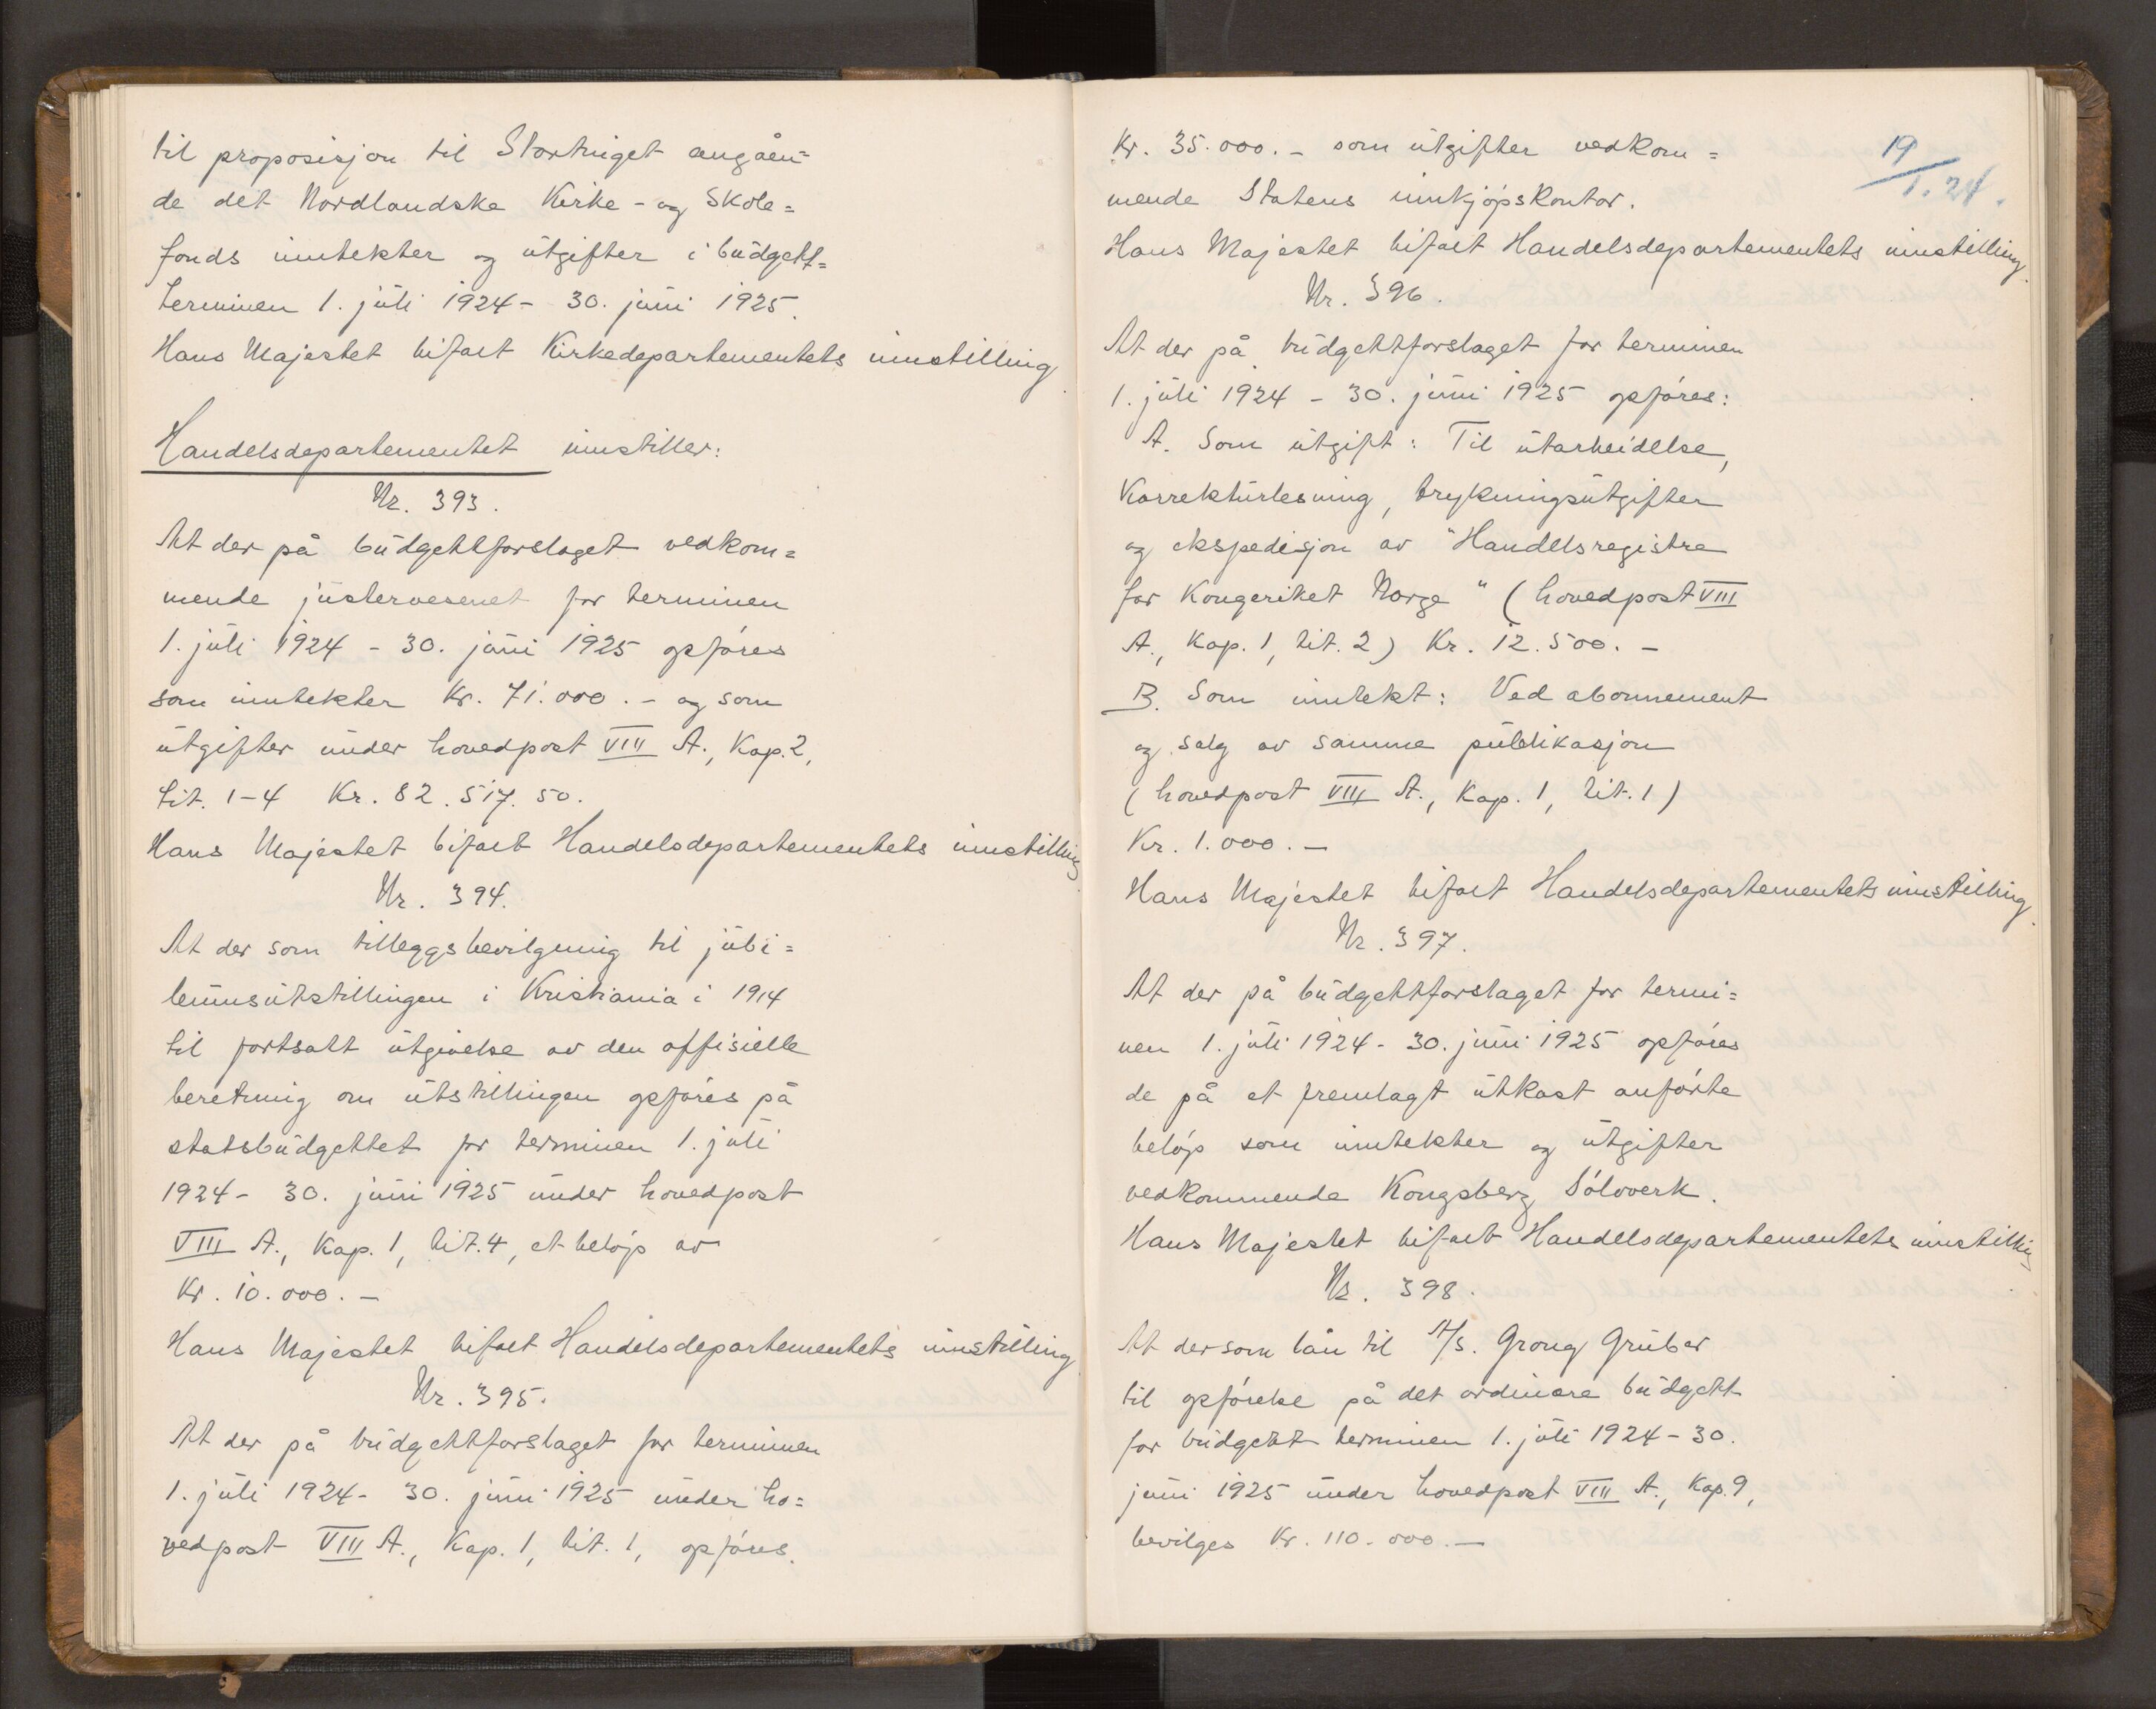 til proposisjon til Stortinget angåen=
de det Nordlandske Kirke- og Skole=
fonds inntekter og utgifter i budgett=
terminen 1. juli 1924 - 30. juni 1925.
Hans Majestet bifalt Kirkedepartementets innstilling.
Handelsdepartementet innstiller:
Nr. 393.
At der på budgettforslaget vedkom=
mende justervesenet for terminen
1. juli 1924 - 30. juni 1925 opføres
som inntekter Kr. 71.000.- og som
utgifter under hovedpost VIII A., Kap. 2,
tit. 1-4 Kr. 82.517.50.
Hans Majestet bifalt Handelsdepartementets innstilling
Nr. 394.
At der som tilleggsbevilgning til jubi=
leumsutstillingen i Kristiania i 1914
til fortsatt utgivelse av den offisielle
beretning om utstillingen opføres på
statsbudgettet for terminen 1. juli
1924 - 30. juni 1925 under hovedpost
VIII A., Kap. 1, tit. 4, et beløp av
Kr. 10.000.-
Hans Majestet bifalt Handelsdepartementets innstilling
Nr. 395.
At der på budgettforslaget for terminen
1. juli 1924 - 30. juni 1925 under ho=
vedpost VIII A., Kap. 1, tit. 1, opføres.
19/1.24.
Kr. 35.000.- som utgifter vedkom=
mende Statens innkjøpskontor.
Hans Majestet bifalt Handelsdepartementets innstilling.
Nr. 396.
At der på budgettforslaget for terminen
1. juli 1924 - 30. juni 1925 opføres:
A. Som utgift: Til utarbeidelse,
Korrekturlesning, trykningsutgifter
og ekspedisjon av "Handelsregistre
for Kongeriket Norge" (hovedpost VIII
A., Kap. 1, tit. 2) Kr. 12.500.-
B. Som inntekt: Ved abonnement
og salg av samme publikasjon
(hovedpost VIII A., Kap. 1, tit. 1)
Kr. 1.000.-
Hans Majestet bifalt Handelsdepartementets innstilling.
Nr. 397.
At der på budgettforslaget for termi=
nen 1. juli 1924 - 30. juni 1925 opføres
de på et fremlagt utkast anførte
beløp som inntekter og utgifter
vedkommende Kongsberg Sølvverk.
Hans Majestet bifalt Handelsdepartementets innstilling
Nr. 398.
At der som lån til A/S. Grong Gruber
til opførelse på det ordinære budgett
for budgett terminen 1. juli 1924 - 30.
juni 1925 under hovedpost VIII A., Kap. 9,
bevilges Kr. 110.000.-